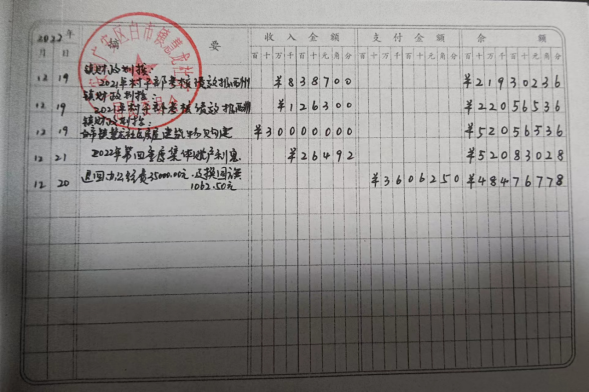 2022年 摘 要 收入金额 支付金额 余 额
月 日 百十万千百十元角分 百十万千百十元角分 百十万千百十元角分
镇财政划拨:
12 19 2021年村干部考核绩效报酬 ¥838700 ¥21930236
镇财政划拨:
12 19 2021年村干部考核绩效报酬 ¥126300 ¥22056536
镇财政划拨:
12 19 ¥30000000 ¥52056536
12 21 2022年第四季度集体账户利息 ¥26492 ¥52083028
12 20 退回办公经费35000.00元 ¥3606250 ¥48476778
1062.50元